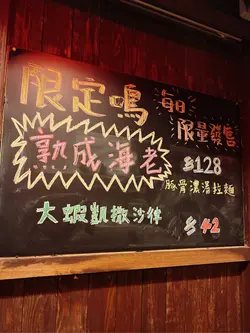 限定鳴 每日
限量發售
熟成海老 $128
豚骨濃湯拉麵
大蝦凱撒沙律 $42